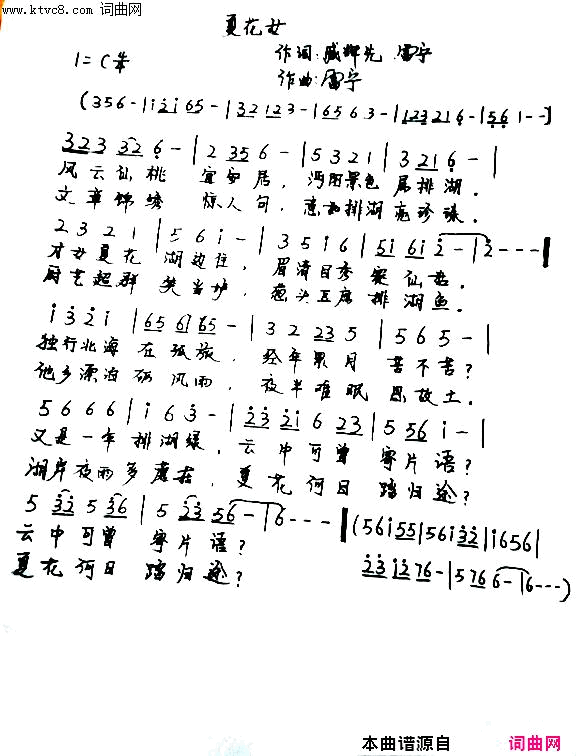 www.ktvc8.com 词曲网
夏花女
1=C 4/4
作词:盛辉先 雷宇
作曲:雷宇
(356-|i2i65-|32123-|16563-|123216-|561--)
323 326-|2356-|5321|3216-|
风云仙桃 宜安居,沔阳景色属排湖.
文章锦绣 惊人句,恋如排湖 珍珠.
2321|56i-|35i6|5i6i2-|2---|
才女夏花 湖边住,眉清目秀 仙.
厨艺超群 笑当炉,葱头五席排湖鱼.
i32i|656i65-|32235|565-|
独行北海在孤旅,经年累月 苦不苦?
他乡漂泊 风雨,夜半难眠 思故土.
5666|i63-|232i623|556i-|
又是一年排湖绿,云中可曾 寄片语?
湖岸夜雨多,夏花何日 踏归途?
532536|52356-|6---|(56i55|56i32|i656|
云中可曾 寄片语?
夏花何日 踏归途?
23i276-|5766-|6---)
本曲谱源自
词曲网